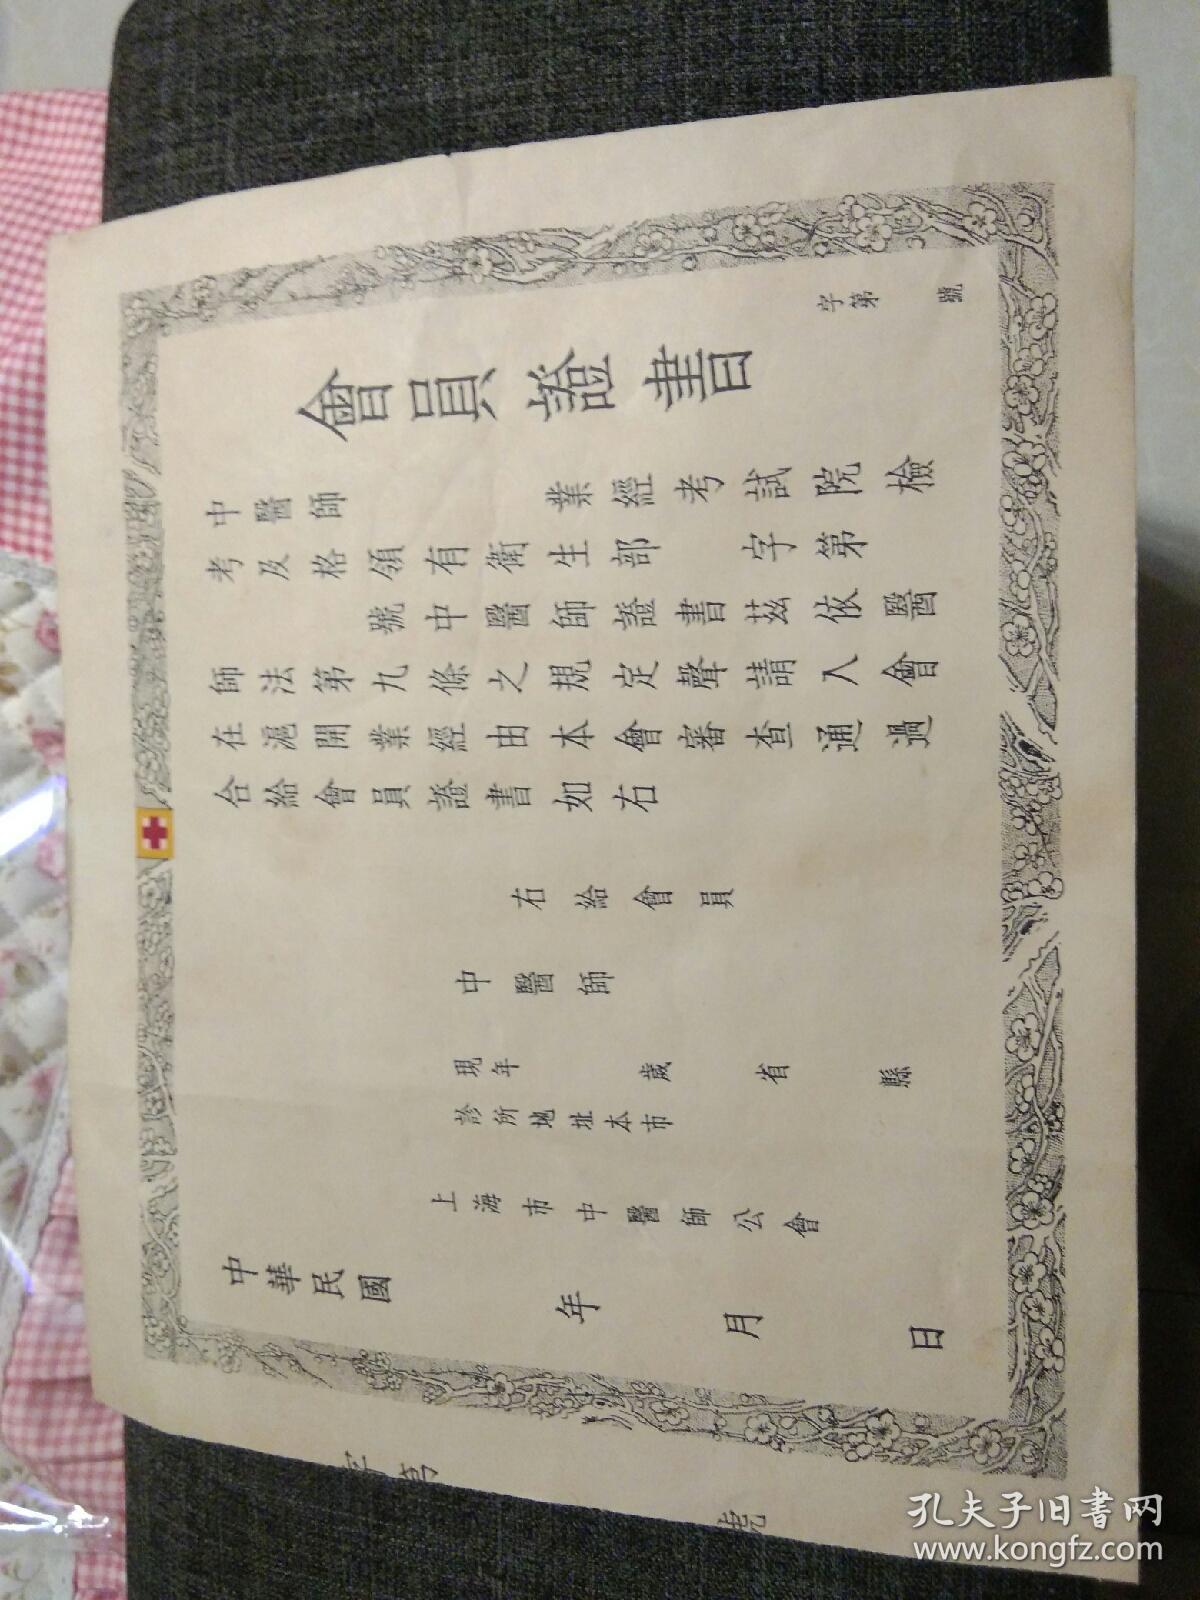 字第 號
會員證書
中醫師 業經考試院檢
考及格領有衛生部 字第
號中醫師證書茲依醫
師法第九條之規定聲請入會
在滬開業經由本會審查通過
合給會員證書如右
右給會員
中醫師
現年 歲 省 縣
診所地址本市
上海市中醫師公會
中華民國 年 月 日
孔夫子旧书网
www.kongfz.com